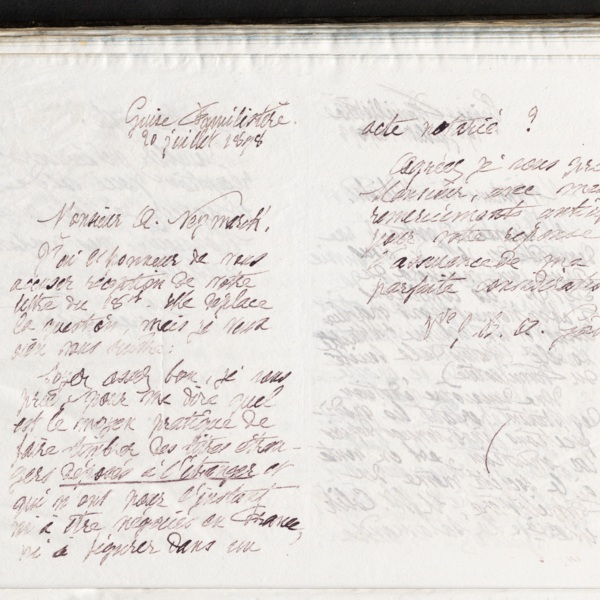 Guise Familistère.
20 juillet 1898
Monsieur A. Neymarck,
J'ai l'honneur de vous
accuser réception de votre
lettre du 18 ct. Elle déplace
la question, mais je veux
bien vous suivre.
Soyez assez bon, je vous
prie, pour me dire quel
est le moyen pratique de
faire timbrer des titres étran-
gers déposés à l'étranger et
qui n'ont pour l'instant
ni à être négociés en France,
ni à figurer dans un
acte notarié ?
Agréez, je vous prie
Monsieur, avec mes
remerciements anticipés
pour votre réponse
l'assurance de ma
parfaite considération
Vve J. B. A. Go